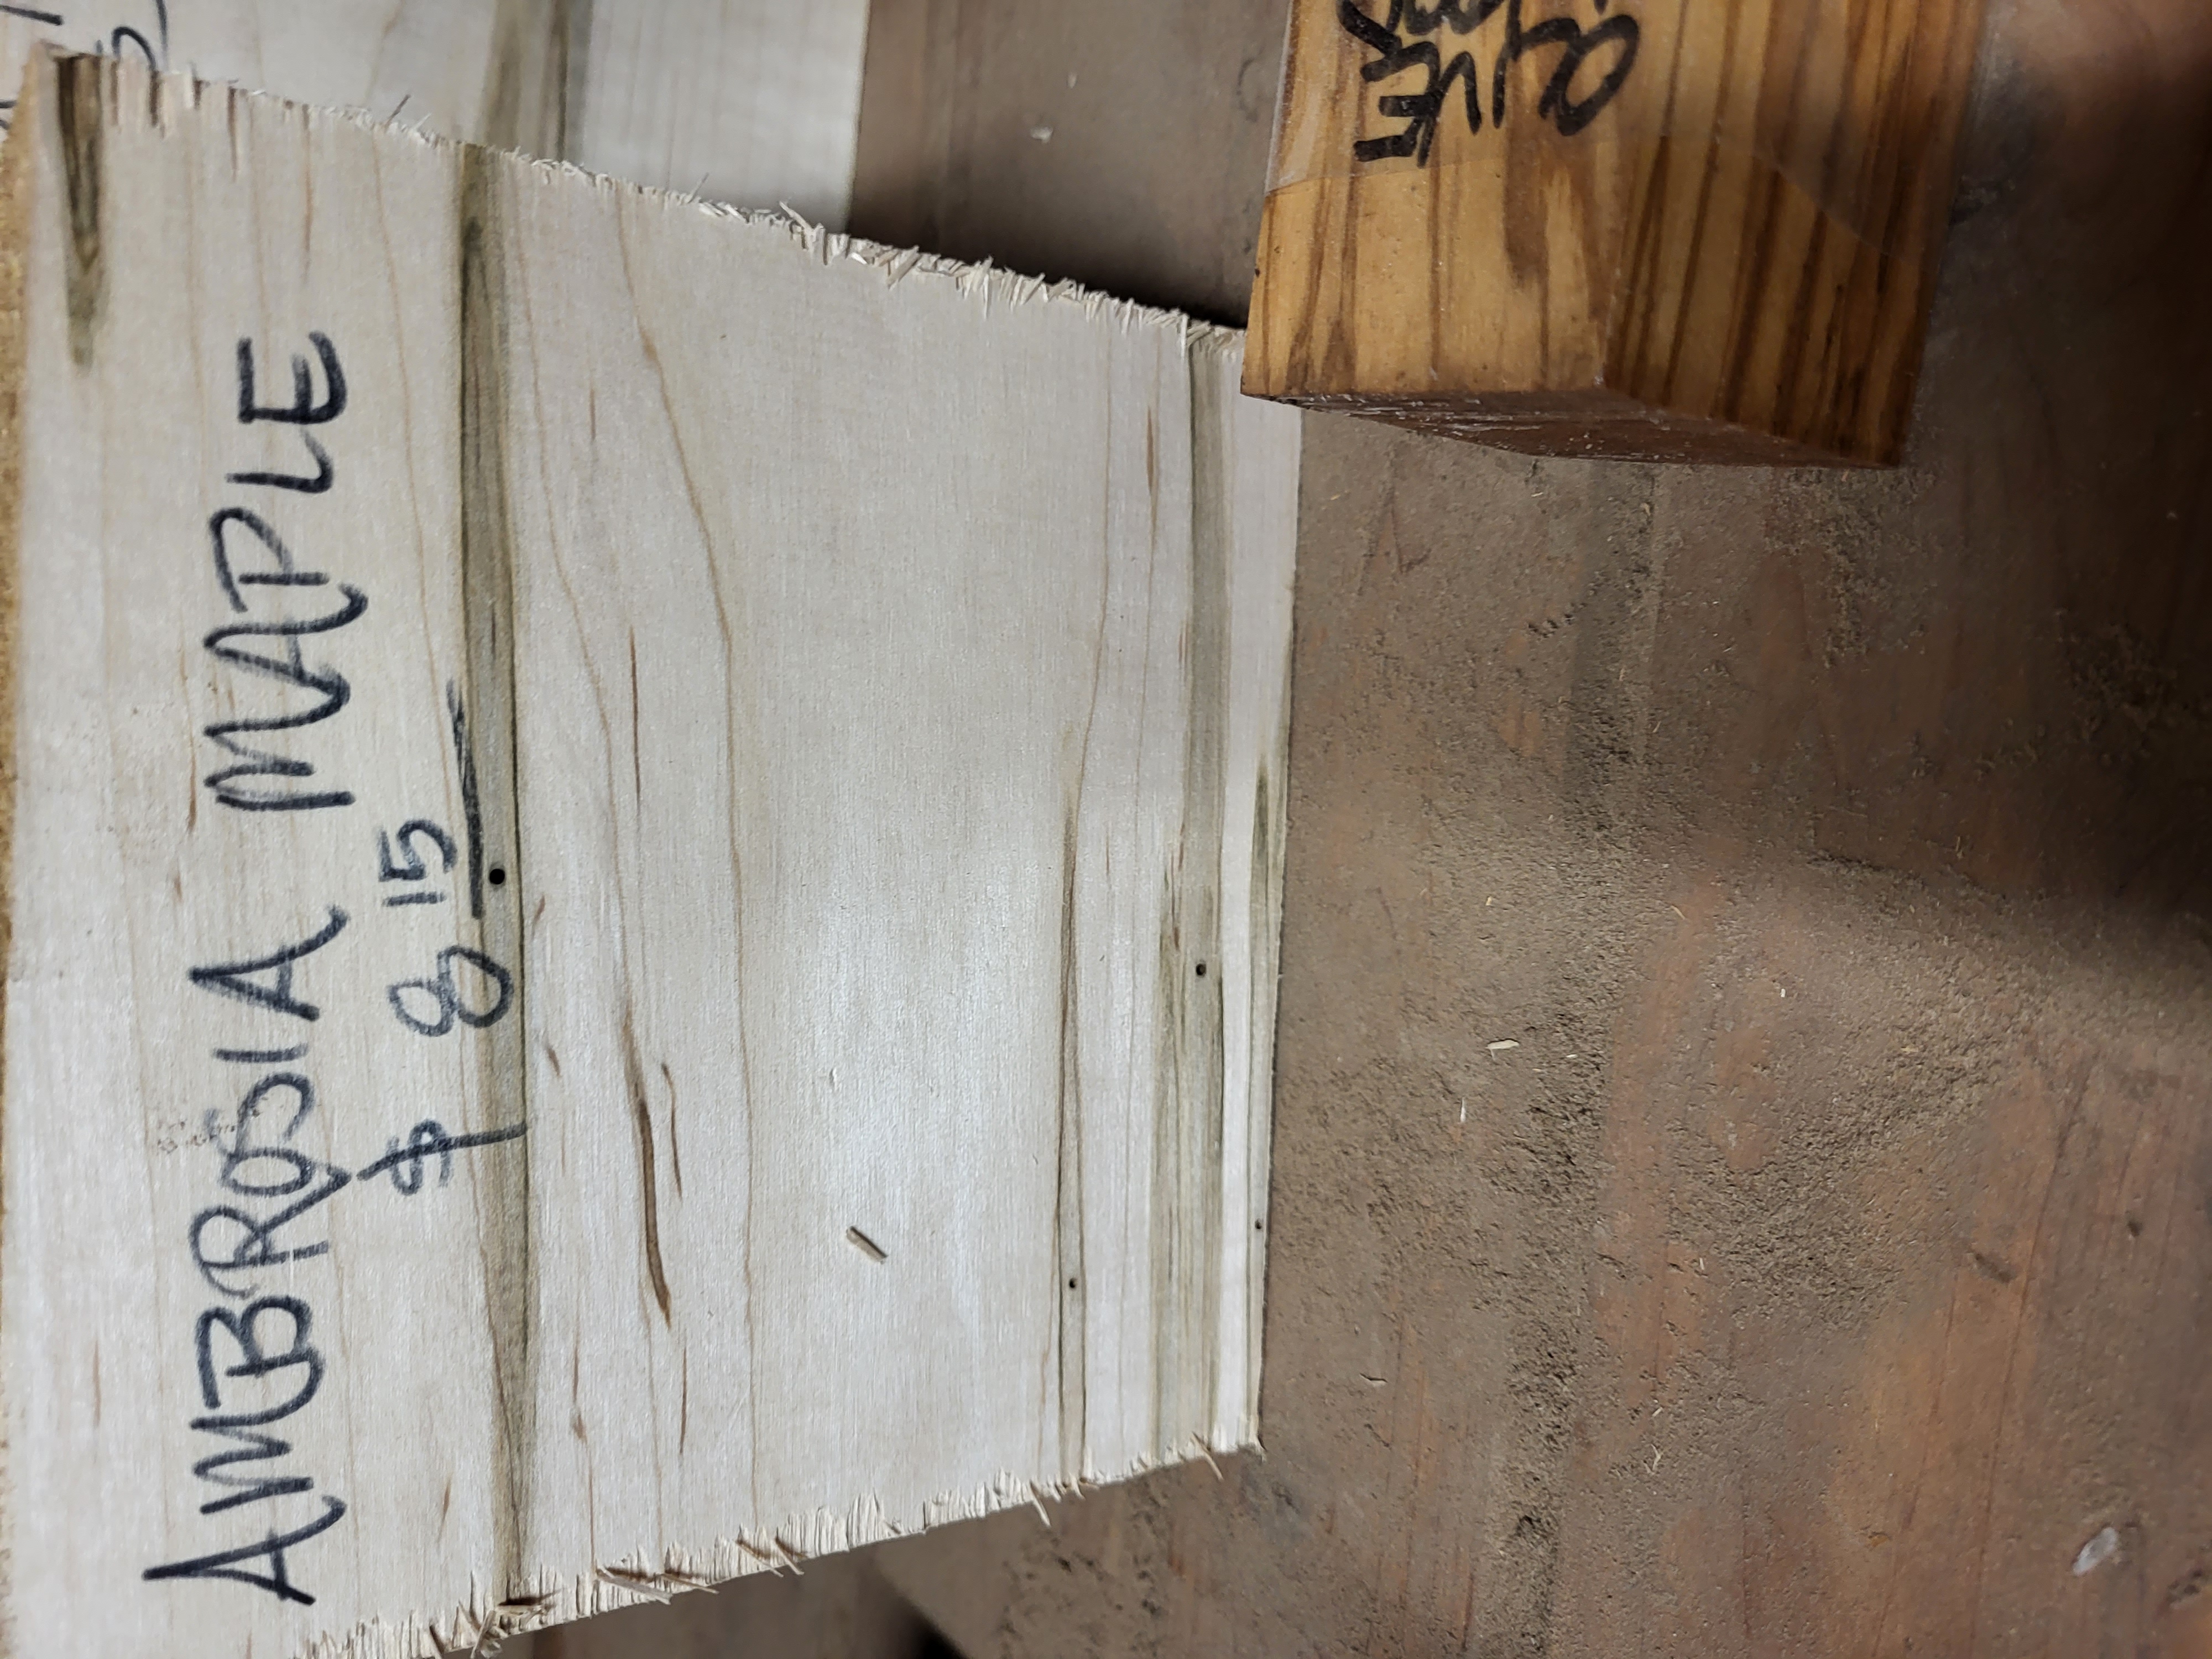 AMBROSIA MAPLE
$ 8 15
OLIVE